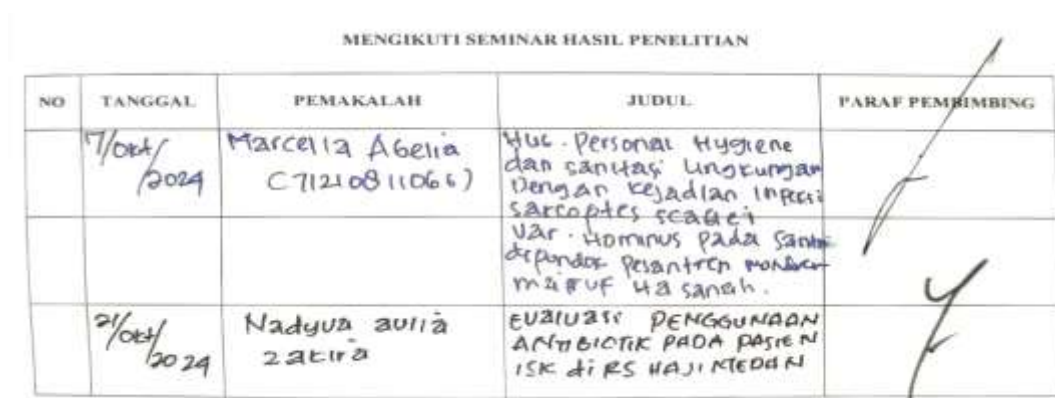 MENGIKUTI SEMINAR HASIL PENELITIAN
NO TANGGAL PEMAKALAH JUDUL PARAF PEMBIMBING
17/Okt/2024
Marcella Abelia
(71210811066)
Hub. Personal Hygiene
dan sanitasi Lingkungan
Dengan Kejadian Infeksi
sarcoptes scabiei
var. Hominus pada Santri
dipondok Pesantren Modern
ma'ruf Hasanah.
21/Okt/2024
Nadyva aulia
zakira
EVALUASI PENGGUNAAN
ANTIBIOTIK PADA PASIEN
ISK di RS HAJI MEDAN